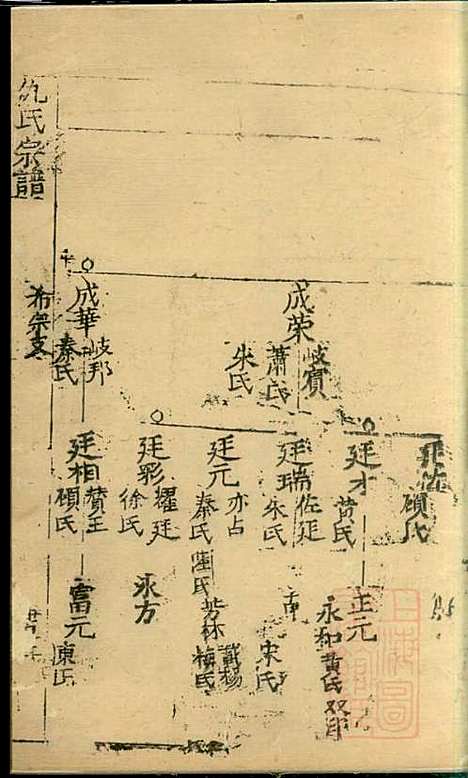 仇氏宗譜
希宗支
成榮
岐賓
蕭氏
朱氏
成華
岐邦
秦氏
碩氏
廷才
黄氏
廷瑞
佐廷
朱氏
廷元
亦占
秦氏
陸氏
廷彩
耀廷
徐氏
廷相
贊王
碩氏
正元
永和
黄氏
宋氏
芳林
梅氏
永方
富元
東氏